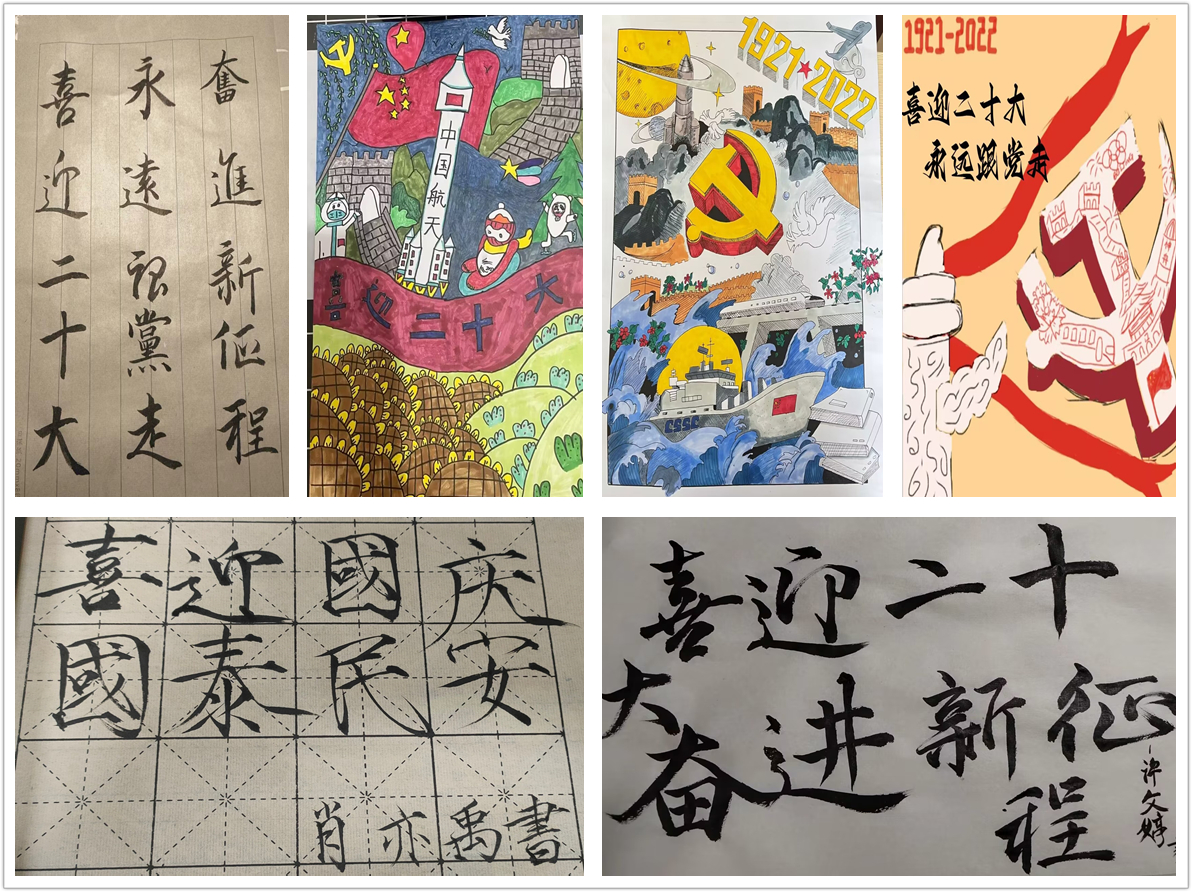 喜迎二十大
永遠跟黨走
奮進新征程
中国航天
喜迎二十大
1921★2022
CSSC
1921-2022
喜迎二十大
永远跟党走
喜迎國庆
國泰民安
肖亦禹書
喜迎二十
大奋进新征
程
许文婷